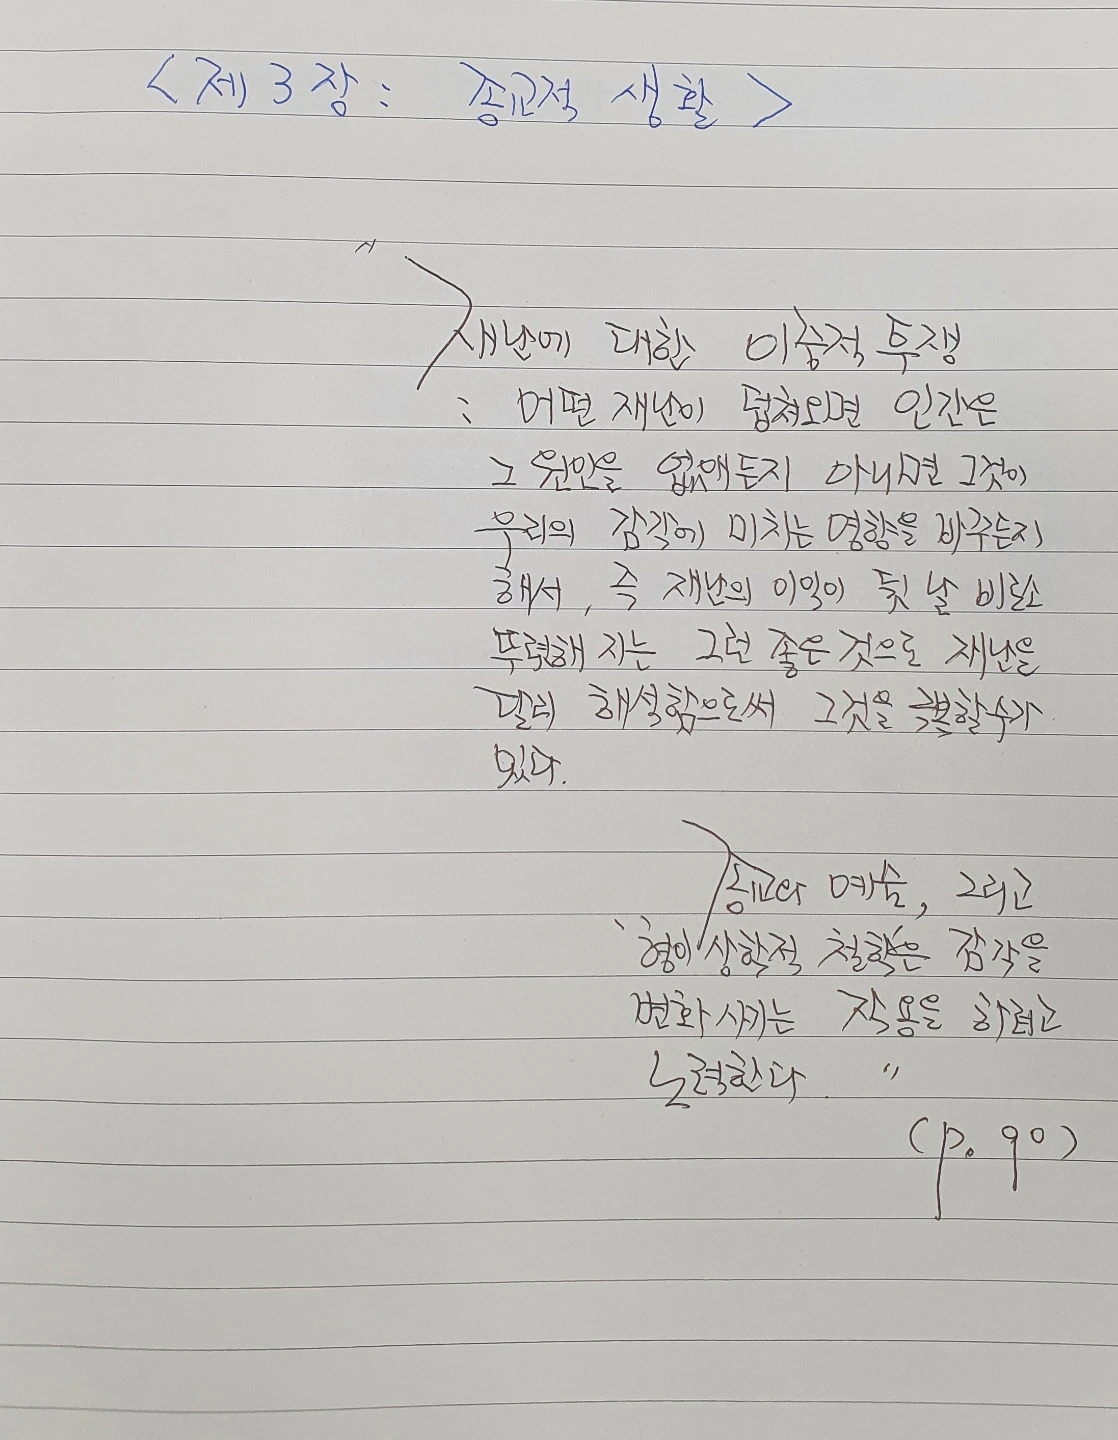 <제3장: 종교적 생활>
"
재난에 대한 이중적 투쟁
: 어떤 재난이 덥쳐오면 인간은
그 원인을 없애든지 아니면 그것이
우리의 감각에 미치는 영향을 바꾸든지
해서, 즉 재난의 이익이 훗날 비로소
뚜렷해 지는 그런 좋은 것으로 재난을
달리 해석함으로써 그것을 극복할수가
있다.
종교와 예술, 그리고
'형이상학적 철학'은 감각을
변화시키는 작용을 하려고
노력한다. "
(p. 90)